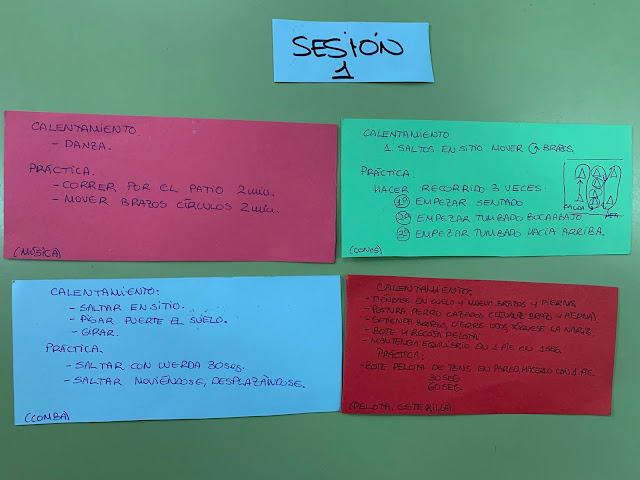 SESIÓN
1
CALENTAMIENTO
- DANZA.
PRÁCTICA.
- CORRER POR EL PATIO 2 min.
- MOVER BRAZOS CÍRCULOS 2 min.
(MÚSICA)
CALENTAMIENTO
1. SALTOS EN SITIO MOVER BRAZOS
PRÁCTICA.
HACER RECORRIDO 3 VECES:
1º EMPEZAR SENTADO
2º EMPEZAR TUMBADO BOCAABAJO
3º EMPEZAR TUMBADO HACIA ARRIBA.
(CONOS)
CALENTAMIENTO:
- SALTAR EN SITIO.
- PISAR FUERTE EL SUELO.
- GIRAR.
PRÁCTICA.
- SALTAR CON CUERDA 30 seg.
- SALTAR MOVIÉNDOSE, DESPLAZÁNDOSE.
(COMBA)
CALENTAMIENTO:
- TIÉNDASE EN SUELO Y MUEVA BRAZOS Y PIERNAS
- POSTURA PERRO CAZADOR (ELEVAR BRAZO Y PIERNA)
- EXTIENDA BRAZOS, CIERRE OJOS, TÓQUESE LA NARIZ.
- BOTE Y RECOJA PELOTA
- MANTENGA EQUILIBRIO EN 1 PIE EN 15SEG.
PRÁCTICA:
- BOTE PELOTA DE TENIS EN PARED, HACERLO CON 1 PIE.
30SEG
60SEG
(PELOTA, ESTERILLA)